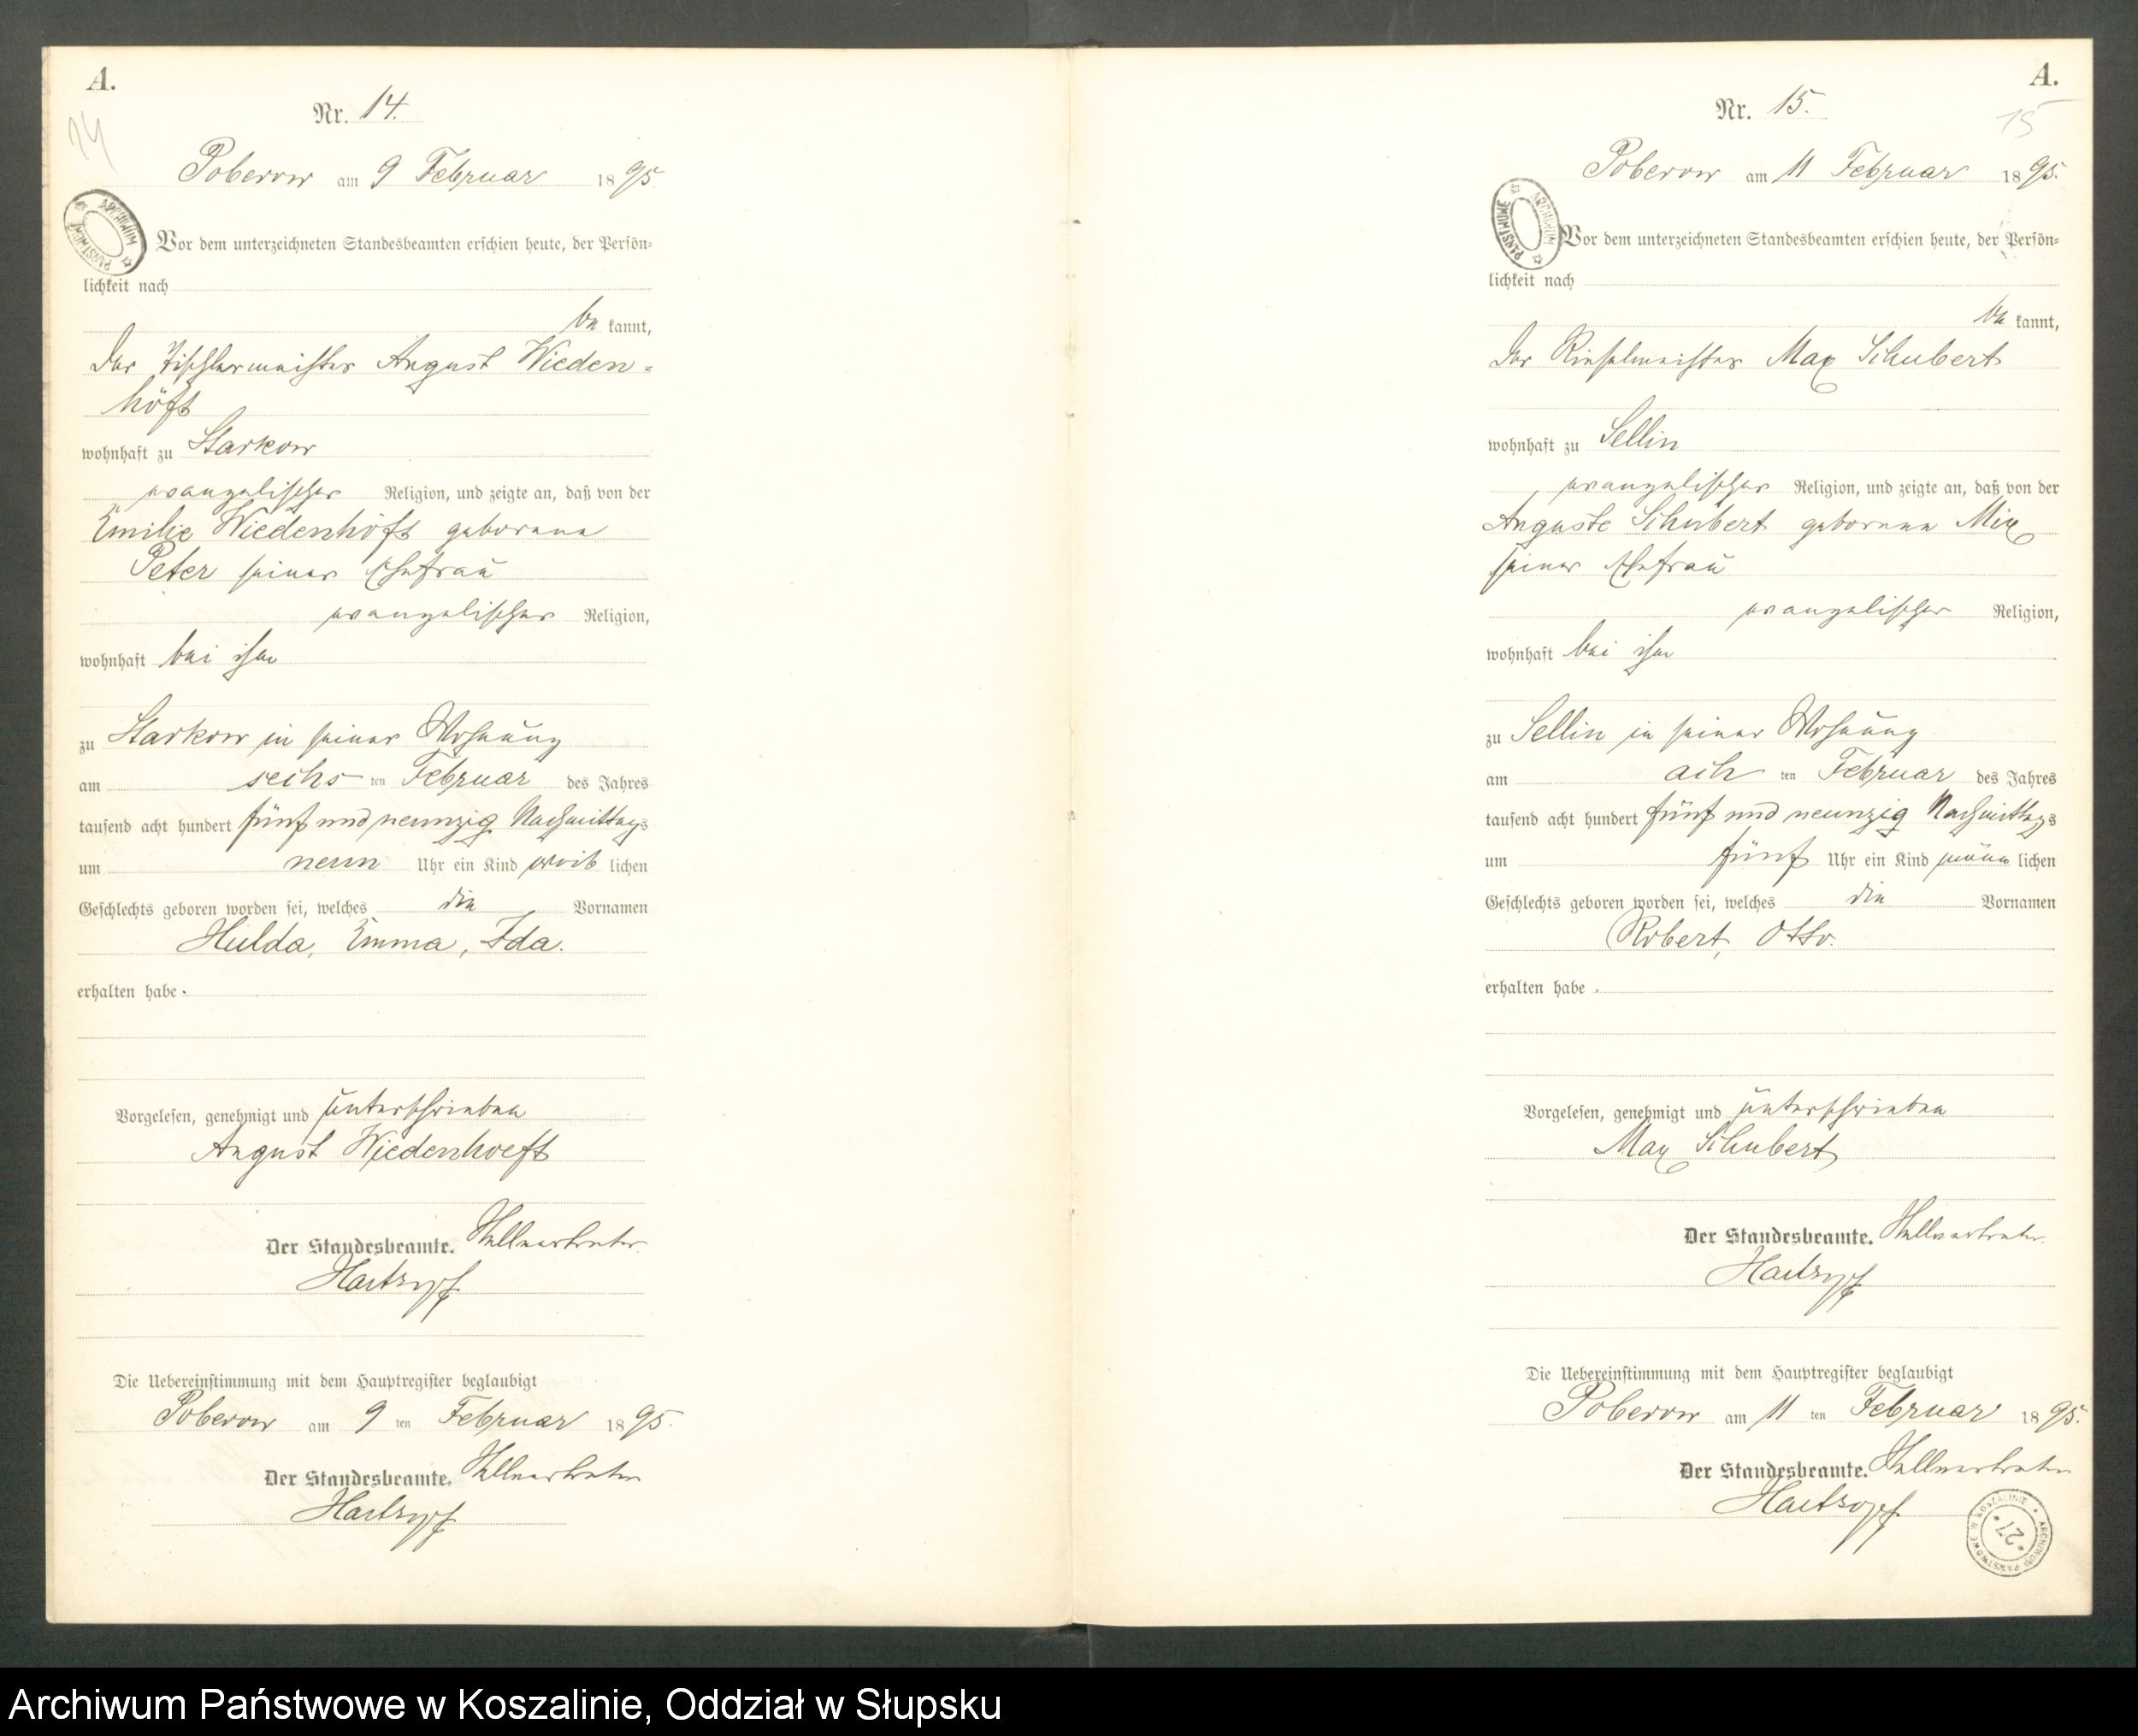 A.
Nr. 14.
14
Poberow am 9 Februar 1895
ARCHIWUM PAŃSTWOWE
Vor dem unterzeichneten Standesbeamten erschien heute, der Persön=
lichkeit nach
be kannt,
der Tischlermeister August Wieden=
höft
wohnhaft zu Starkow
evangelischer Religion, und zeigte an, daß von der
Emilie Wiedenhöft geborene
Peter seiner Ehefrau
evangelischer Religion,
wohnhaft bei ihm
zu Starkow in seiner Wohnung
am sechs ten Februar des Jahres
tausend acht hundert fünf und neunzig Nachmittags
um neun Uhr ein Kind weib lichen
Geschlechts geboren worden sei, welches die Vornamen
Hulda, Emma, Ida.
erhalten habe.
Vorgelesen, genehmigt und unterschrieben
August Wiedenhoeft
Der Standesbeamte. Stellvertreter
Hartzopf
Die Uebereinstimmung mit dem Hauptregister beglaubigt
Poberow am 9 ten Februar 1895.
Der Standesbeamte. Stellvertreter
Hartzopf
A.
Nr. 15.
15
Poberow am 11 Februar 1895.
ARCHIWUM PAŃSTWOWE
Vor dem unterzeichneten Standesbeamten erschien heute, der Persön=
lichkeit nach
be kannt,
der Rieselmeister Max Schubert
wohnhaft zu Sellin
evangelischer Religion, und zeigte an, daß von der
Auguste Schubert geborene Mix
seiner Ehefrau
evangelischer Religion,
wohnhaft bei ihm
zu Sellin in seiner Wohnung
am ach ten Februar des Jahres
tausend acht hundert fünf und neunzig Nachmittags
um fünf Uhr ein Kind männ lichen
Geschlechts geboren worden sei, welches die Vornamen
Robert, Otto.
erhalten habe.
Vorgelesen, genehmigt und unterschrieben
Max Schubert
Der Standesbeamte. Stellvertreter
Hartzopf
Die Uebereinstimmung mit dem Hauptregister beglaubigt
Poberow am 11 ten Februar 1895.
Der Standesbeamte. Stellvertreter
Hartzopf
ARCHIWUM PAŃSTWOWE W KOSZALINIE * 27 *
Archiwum Państwowe w Koszalinie, Oddział w Słupsku